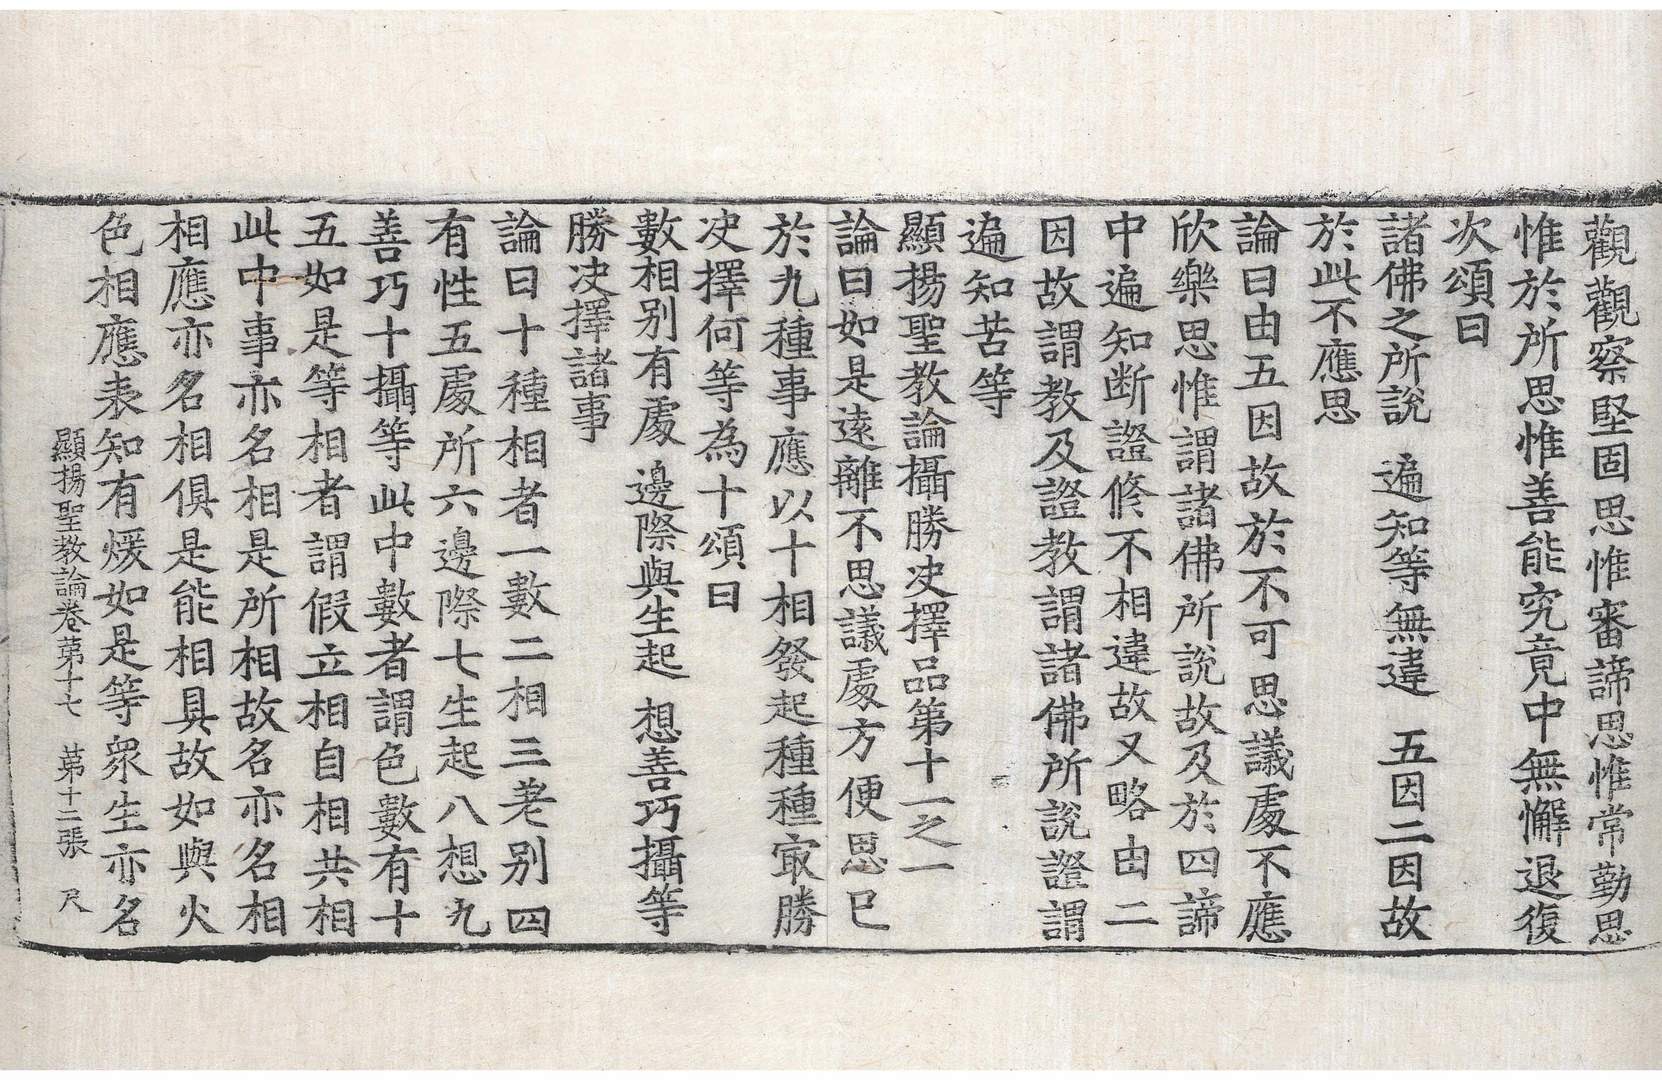 觀觀察堅固思惟審諦思惟常勤思
惟於所思惟善能究竟中無懈退復
次頌曰
諸佛之所說　遍知等無違　五因二因故
於此不應思
論曰由五因故於不可思議處不應
欣樂思惟謂諸佛所說故及於四諦
中遍知断證修不相違故又略由二
因故謂教及證教謂諸佛所說證謂
遍知苦等
顯揚聖教論攝勝决擇品第十一之一
論曰如是遠離不思議處方便思已
於九種事應以十相發起種種㝡勝
决擇何等為十頌曰
數相别有處　邊際與生起　想善巧攝等
勝决擇諸事
論曰十種相者一數二相三差别四
有性五處所六邊際七生起八想九
善巧十攝等此中數者謂色數有十
五如是等相者謂假立相自相共相
此中事亦名相是所相故名亦名相
相應亦名相俱是能相具故如與火
色相應表知有煖如是等衆生亦名
顯揚聖教論卷苐十七　苐十二張　尺